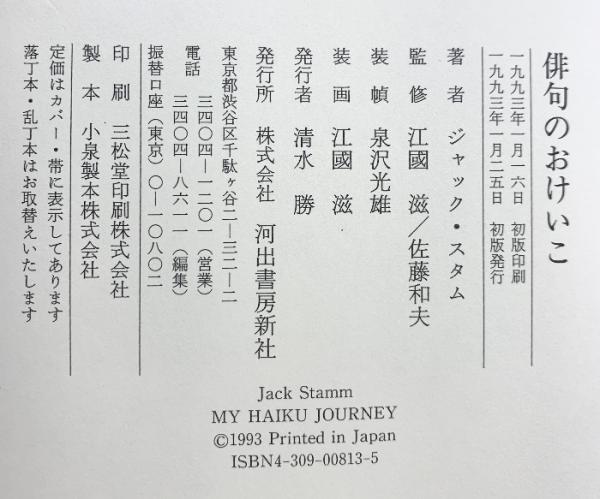 俳句のおけいこ
一九九三年一月一六日　初版印刷
一九九三年一月二五日　初版発行
著者　ジャック・スタム
監修　江國　滋／佐藤和夫
装幀　泉沢光雄
装画　江國　滋
発行者　清水　勝
発行所　株式会社　河出書房新社
東京都渋谷区千駄ヶ谷二—三二—二
電話　三四〇四—一二〇一（営業）
三四〇四—八六一一（編集）
振替口座（東京）〇—一〇八〇二
印刷　三松堂印刷株式会社
製本　小泉製本株式会社
定価はカバー・帯に表示してあります
落丁本・乱丁本はお取替えいたします
Jack Stamm
MY HAIKU JOURNEY
©1993 Printed in Japan
ISBN4-309-00813-5